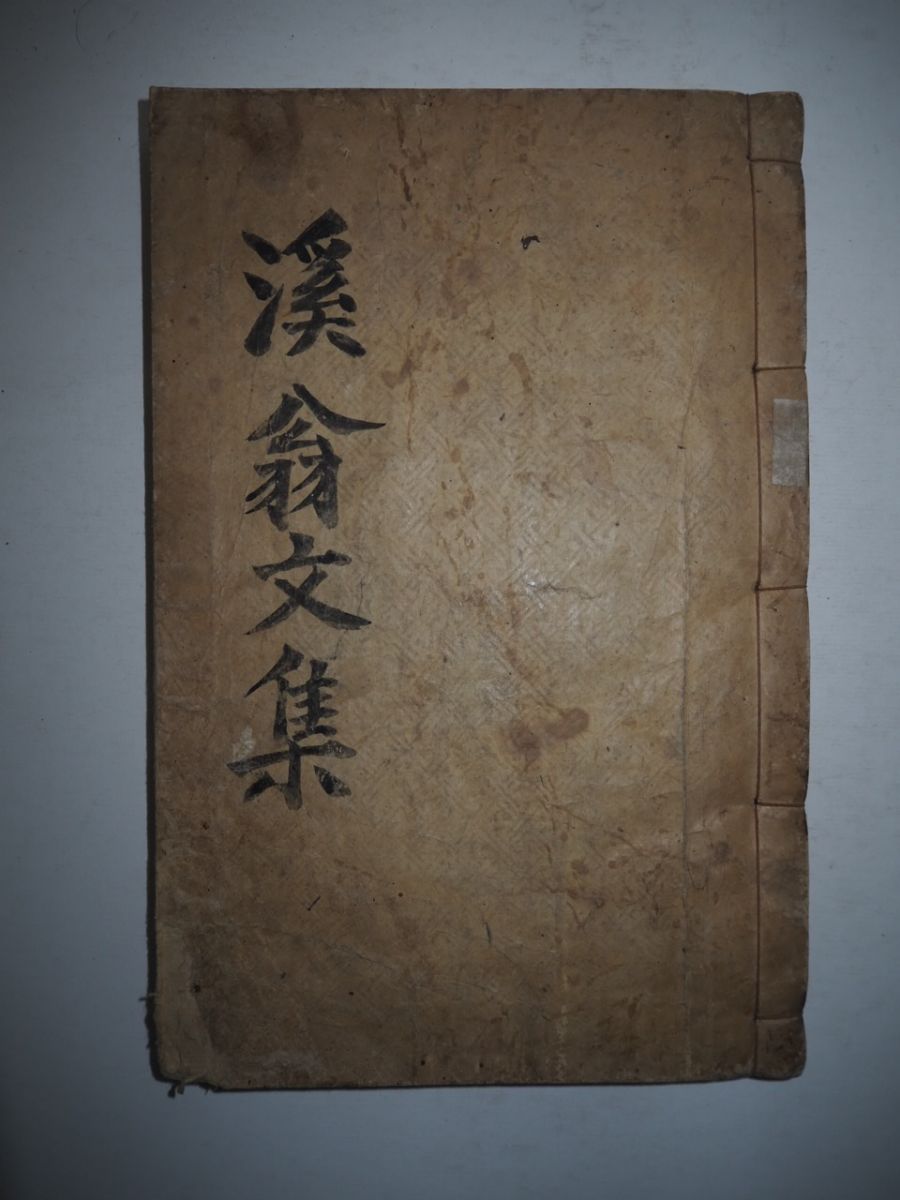 溪翁文集